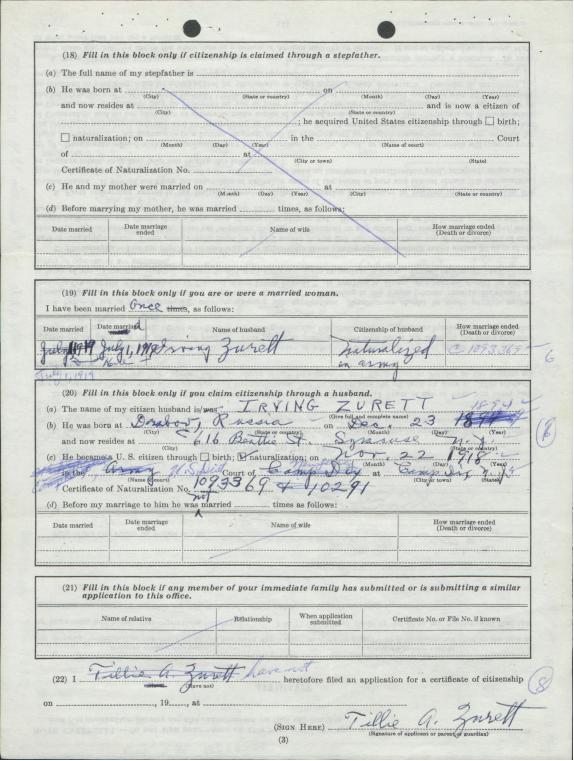 (18) Fill in this block only if citizenship is claimed through a stepfather.
(a) The full name of my stepfather is
(b) He was born at on
(City) (State or country) (Month) (Day) (Year)
and now resides at and is now a citizen of
(City) (State or country)
; he acquired United States citizenship through ☐ birth;
☐ naturalization; on in the Court
(Month) (Day) (Year) (Name of court)
of at
(City or town) (State)
Certificate of Naturalization No.
(c) He and my mother were married on at
(Month) (Day) (Year) (City) (State or country)
(d) Before marrying my mother, he was married times, as follows:
Date married Date marriage ended Name of wife How marriage ended (Death or divorce)
(19) Fill in this block only if you are or were a married woman.
I have been married Once times, as follows:
Date married Date married Name of husband Citizenship of husband How marriage ended (Death or divorce)
July 1, 1919 Irving Zurett naturalized in army C 1093369
July 1, 1919
6
(20) Fill in this block only if you claim citizenship through a husband.
(a) The name of my citizen husband is was IRVING ZURETT 1894
(Give full and complete name)
(b) He was born at Russia on Dec. 23
(City) (State or country) (Month) (Day) (Year)
and now resides at 616 St. Syracuse n.y.
(City) (State or country)
(c) He became a U. S. citizen through ☐ birth; ☑ naturalization on Nov. 22 1918
(Month) (Day) (Year)
in the Army Court of Camp Dix at Camp Dix, n.J.
(Name of court) (City or town) (State)
Certificate of Naturalization No. 1093369 & 10291
(d) Before my marriage to him he was not married times as follows:
Date married Date marriage ended Name of wife How marriage ended (Death or divorce)
(21) Fill in this block if any member of your immediate family has submitted or is submitting a similar application to this office.
Name of relative Relationship When application submitted Certificate No. or File No. if known
(22) I Tillie A. Zurett have not heretofore filed an application for a certificate of citizenship
(have not)
8
on , 19 , at
(SIGN HERE) Tillie A. Zurett
(Signature of applicant or parent or guardian)
(3)